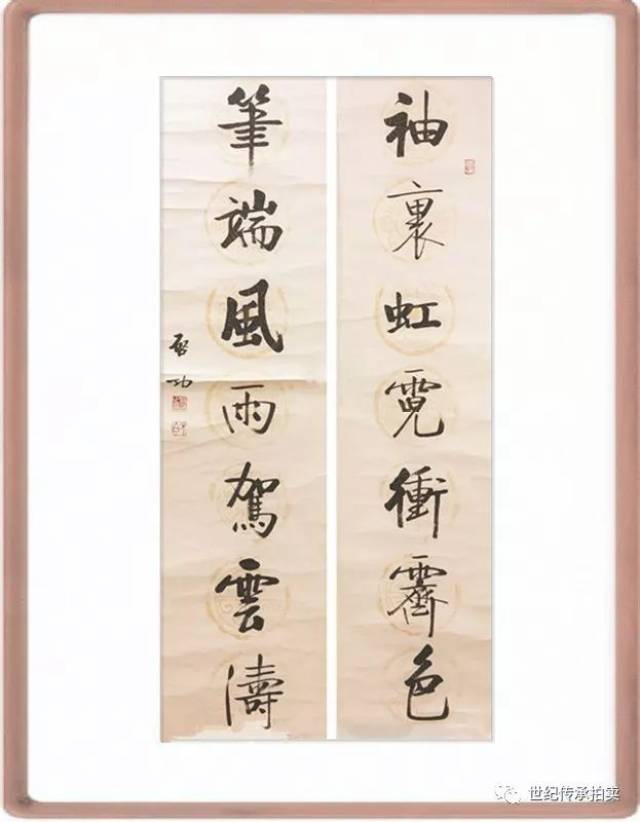 袖裏虹霓衝霽色
筆端風雨駕雲濤
啓功
世纪传承拍卖